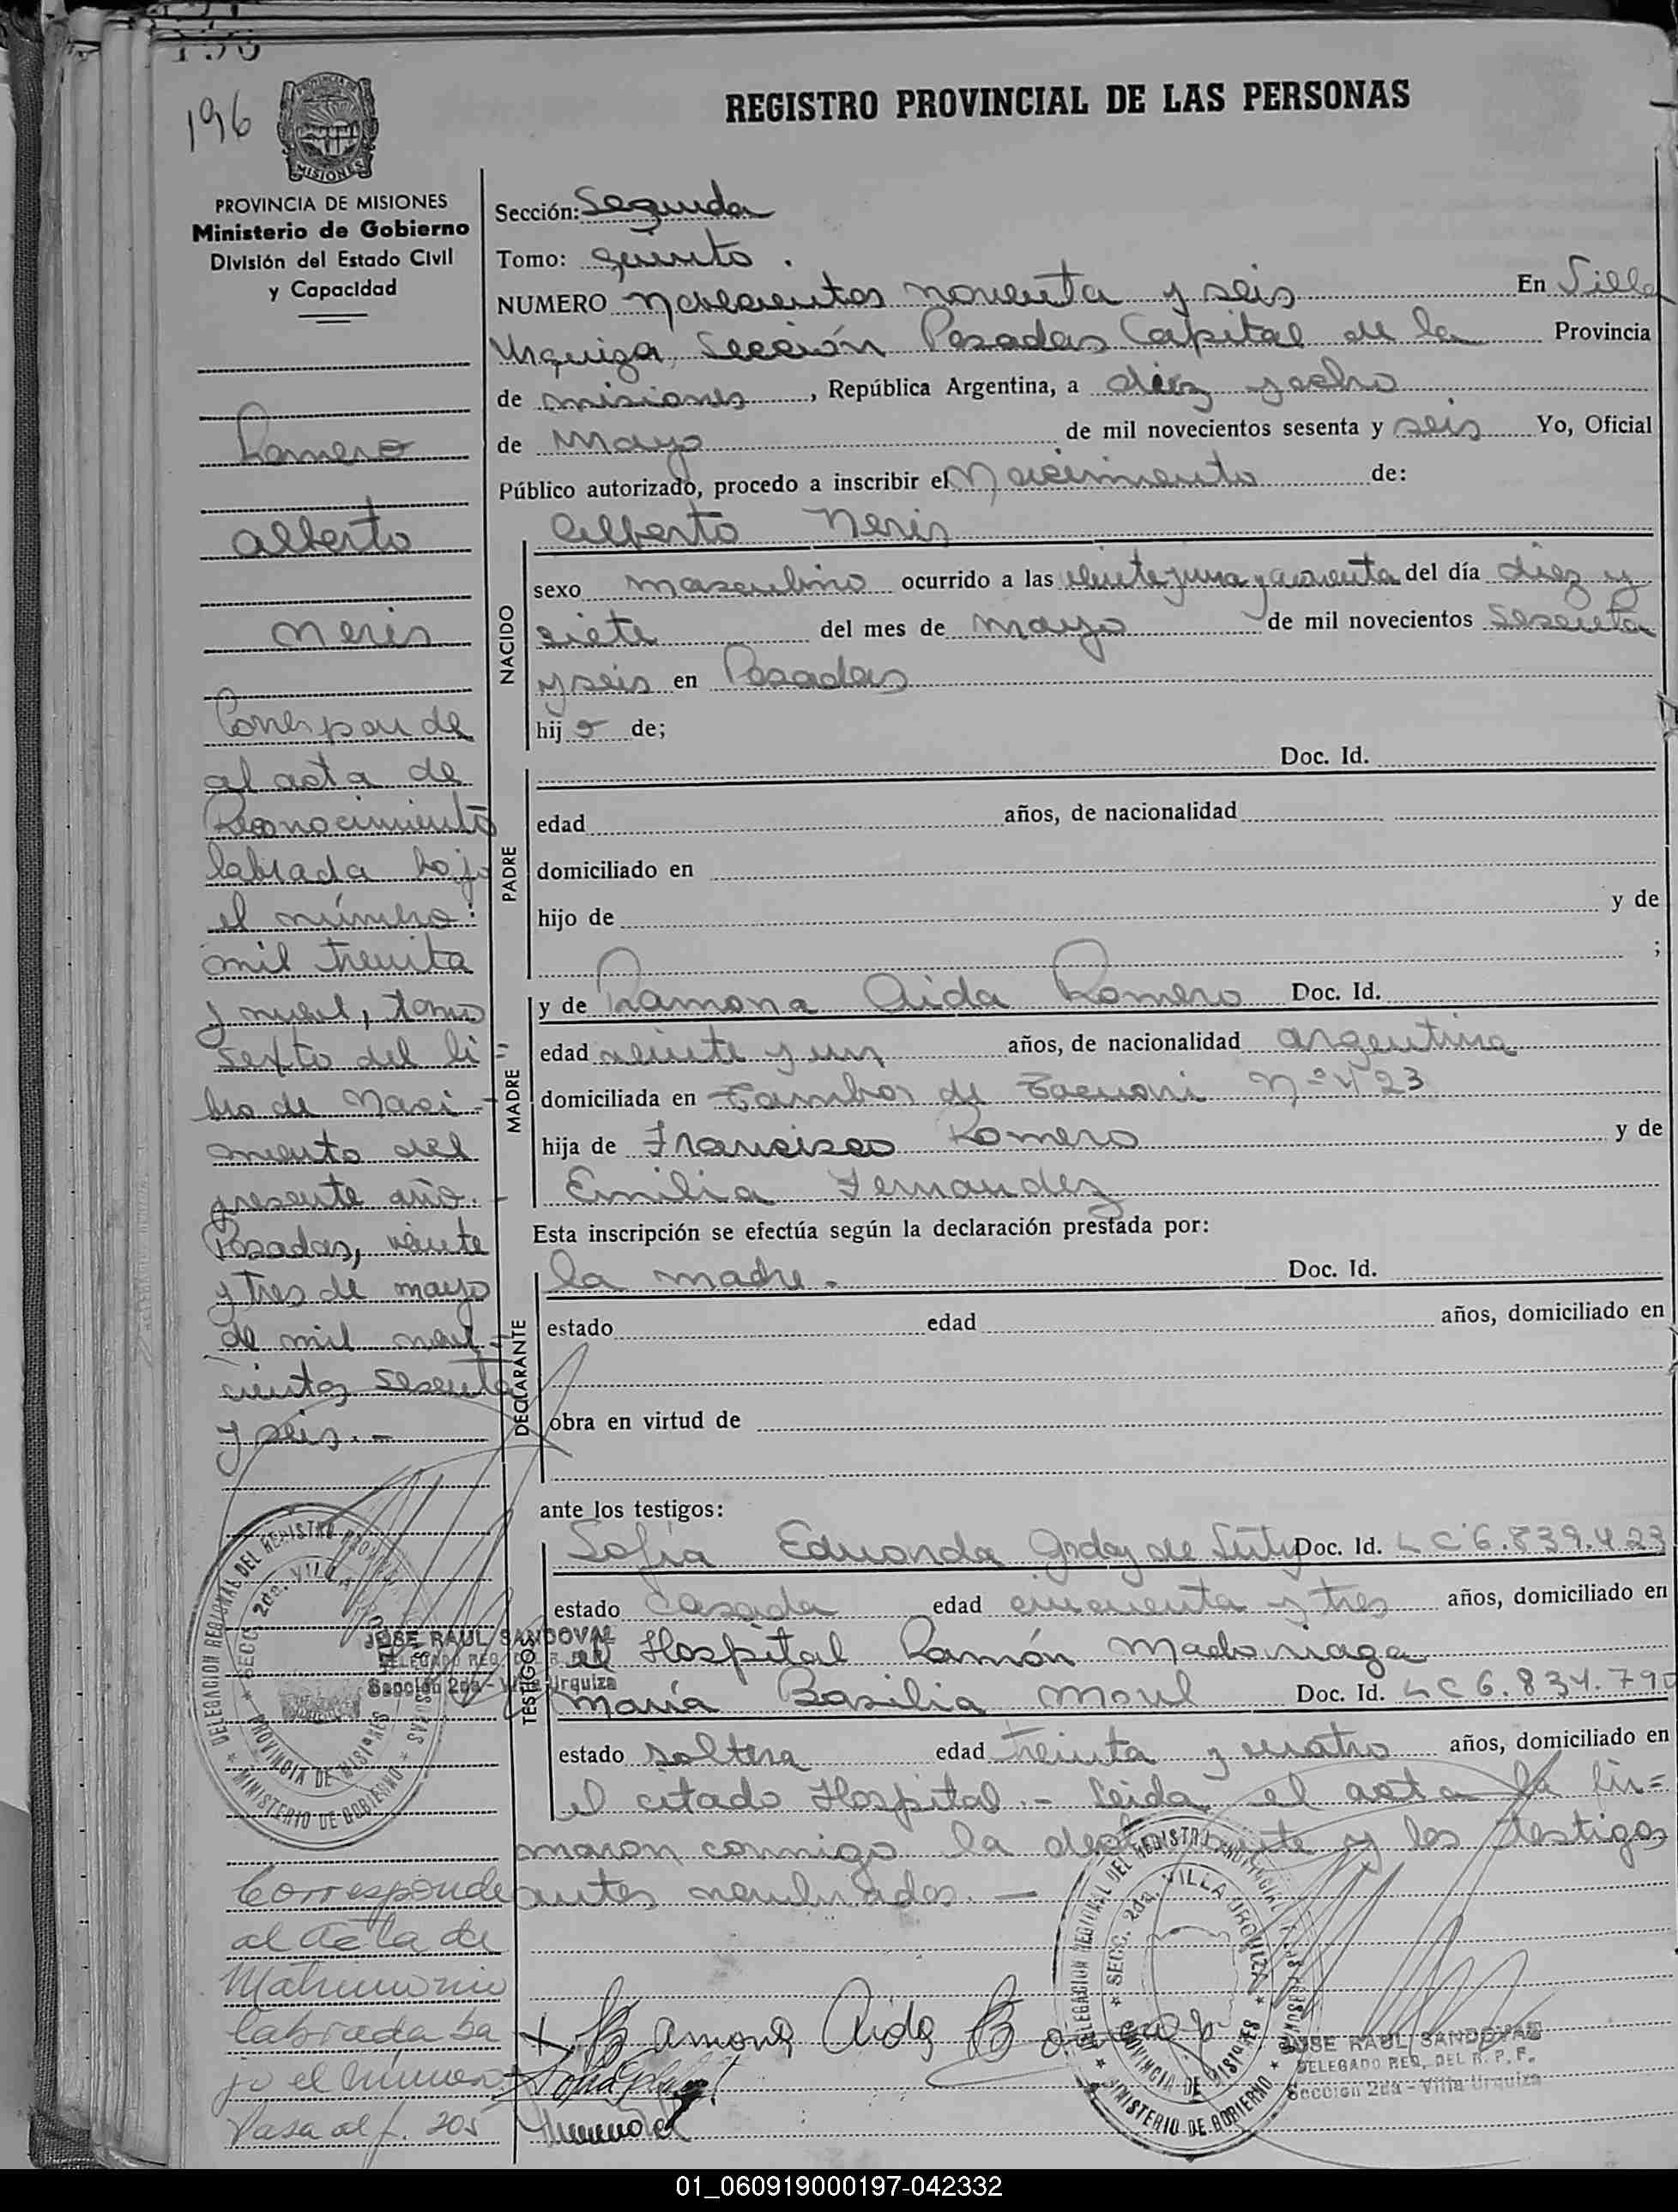 196
MISIONES
PROVINCIA DE MISIONES
Ministerio de Gobierno
División del Estado Civil
y Capacidad
Romero
Alberto
Neris
Corresponde
al acta de
Reconocimiento
labrada bajo
el número:
mil treinta
y nueve, tomo
sexto del li
bro de Naci-
miento del
presente año.-
Posadas, veinte
y tres de mayo
de mil nove-
cientos sesenta
y seis.-
DELEGACION REGIONAL DEL REGISTRO
SECC. 2da. VILLA
PROVINCIA DE MISIONES
MINISTERIO DE GOBIERNO
JOSE RAUL SANDOVAL
DELEGADO REG. DEL R. P. P.
Sección 2da - Villa Urquiza
Corresponde
al Acta de
Matrimonio
labrada ba
jo el número
Pasa al f. 205
REGISTRO PROVINCIAL DE LAS PERSONAS
Sección: Segunda
Tomo: quinto.
NUMERO novecientos noventa y seis En Villa
Urquiza, Sección Posadas Capital de la Provincia
de misiones, República Argentina, a diez y ocho
de Mayo de mil novecientos sesenta y seis Yo, Oficial
Público autorizado, procedo a inscribir el Nacimiento de:
Alberto Neris
NACIDO
sexo masculino ocurrido a las veinte y una y cuarenta del día diez y
siete del mes de mayo de mil novecientos sesenta
y seis en Posadas
hij o de;
PADRE
Doc. Id.
edad años, de nacionalidad
domiciliado en
hijo de y de
;
MADRE
y de Ramona Aida Romero Doc. Id.
edad veinte y un años, de nacionalidad argentina
domiciliada en Tambor de Tacuari Nº 423
hija de Francisco Romero y de
Emilia Fernandez
Esta inscripción se efectúa según la declaración prestada por:
DECLARANTE
la madre.- Doc. Id.
estado edad años, domiciliado en
obra en virtud de
ante los testigos:
TESTIGOS
Sofía Eduarda Godoy de Doc. Id. LC 6.839.423
estado Casada edad cincuenta y tres años, domiciliado en
el Hospital Ramón Madariaga
María Basilia Doc. Id. LC 6.834.790
estado soltera edad treinta y cuatro años, domiciliado en
el citado Hospital.- Leida el acta la fir=
maron conmigo la declarante y los testigos
antes nombrados.-
DELEGACION REGIONAL DEL REGISTRO PROVINCIAL DE LAS PERSONAS
SECC. 2da. VILLA URQUIZA
PROVINCIA DE MISIONES
MINISTERIO DE GOBIERNO
x Ramona Aida Romero
JOSE RAUL SANDOVAL
DELEGADO REG. DEL R. P. P.
Sección 2da - Villa Urquiza
01_060919000197-042332